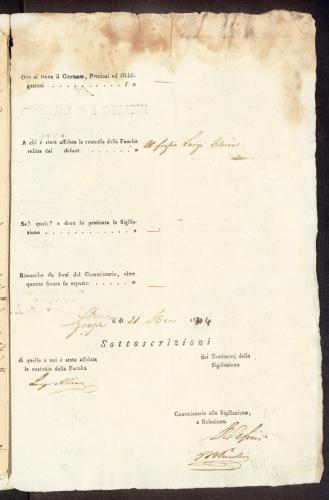 Ove si trova il Contante, Preziosi ed Obbli-
gazioni . . . . . . . . . . . . "
A chi è stata affidata la custodia della Facoltà
relitta dal defunt . . . . . . . . " Al figlio Luigi
Se? quale? e dove fu praticata la Sigilla-
zione . . . . . . . . . . . . "
Ricerche da farsi dal Commissario, oltre
quanto finora fu esposto . . . . . "
il dì 21 4
Sottoscrizioni
di quello a cui è stata affidata
la custodia della Facoltà
Luigi
dei Testimonj della
Sigillazione
Commissario alla Sigillazione,
o Relazione.